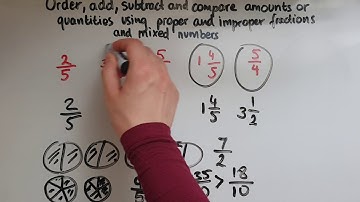 Order, add, subtract and compare amounts or
quantities using proper and improper fractions
and mixed numbers
2/5 5 1 4/5 5/4
2/5 1 4/5 3 1/2
7/2
> 18/10